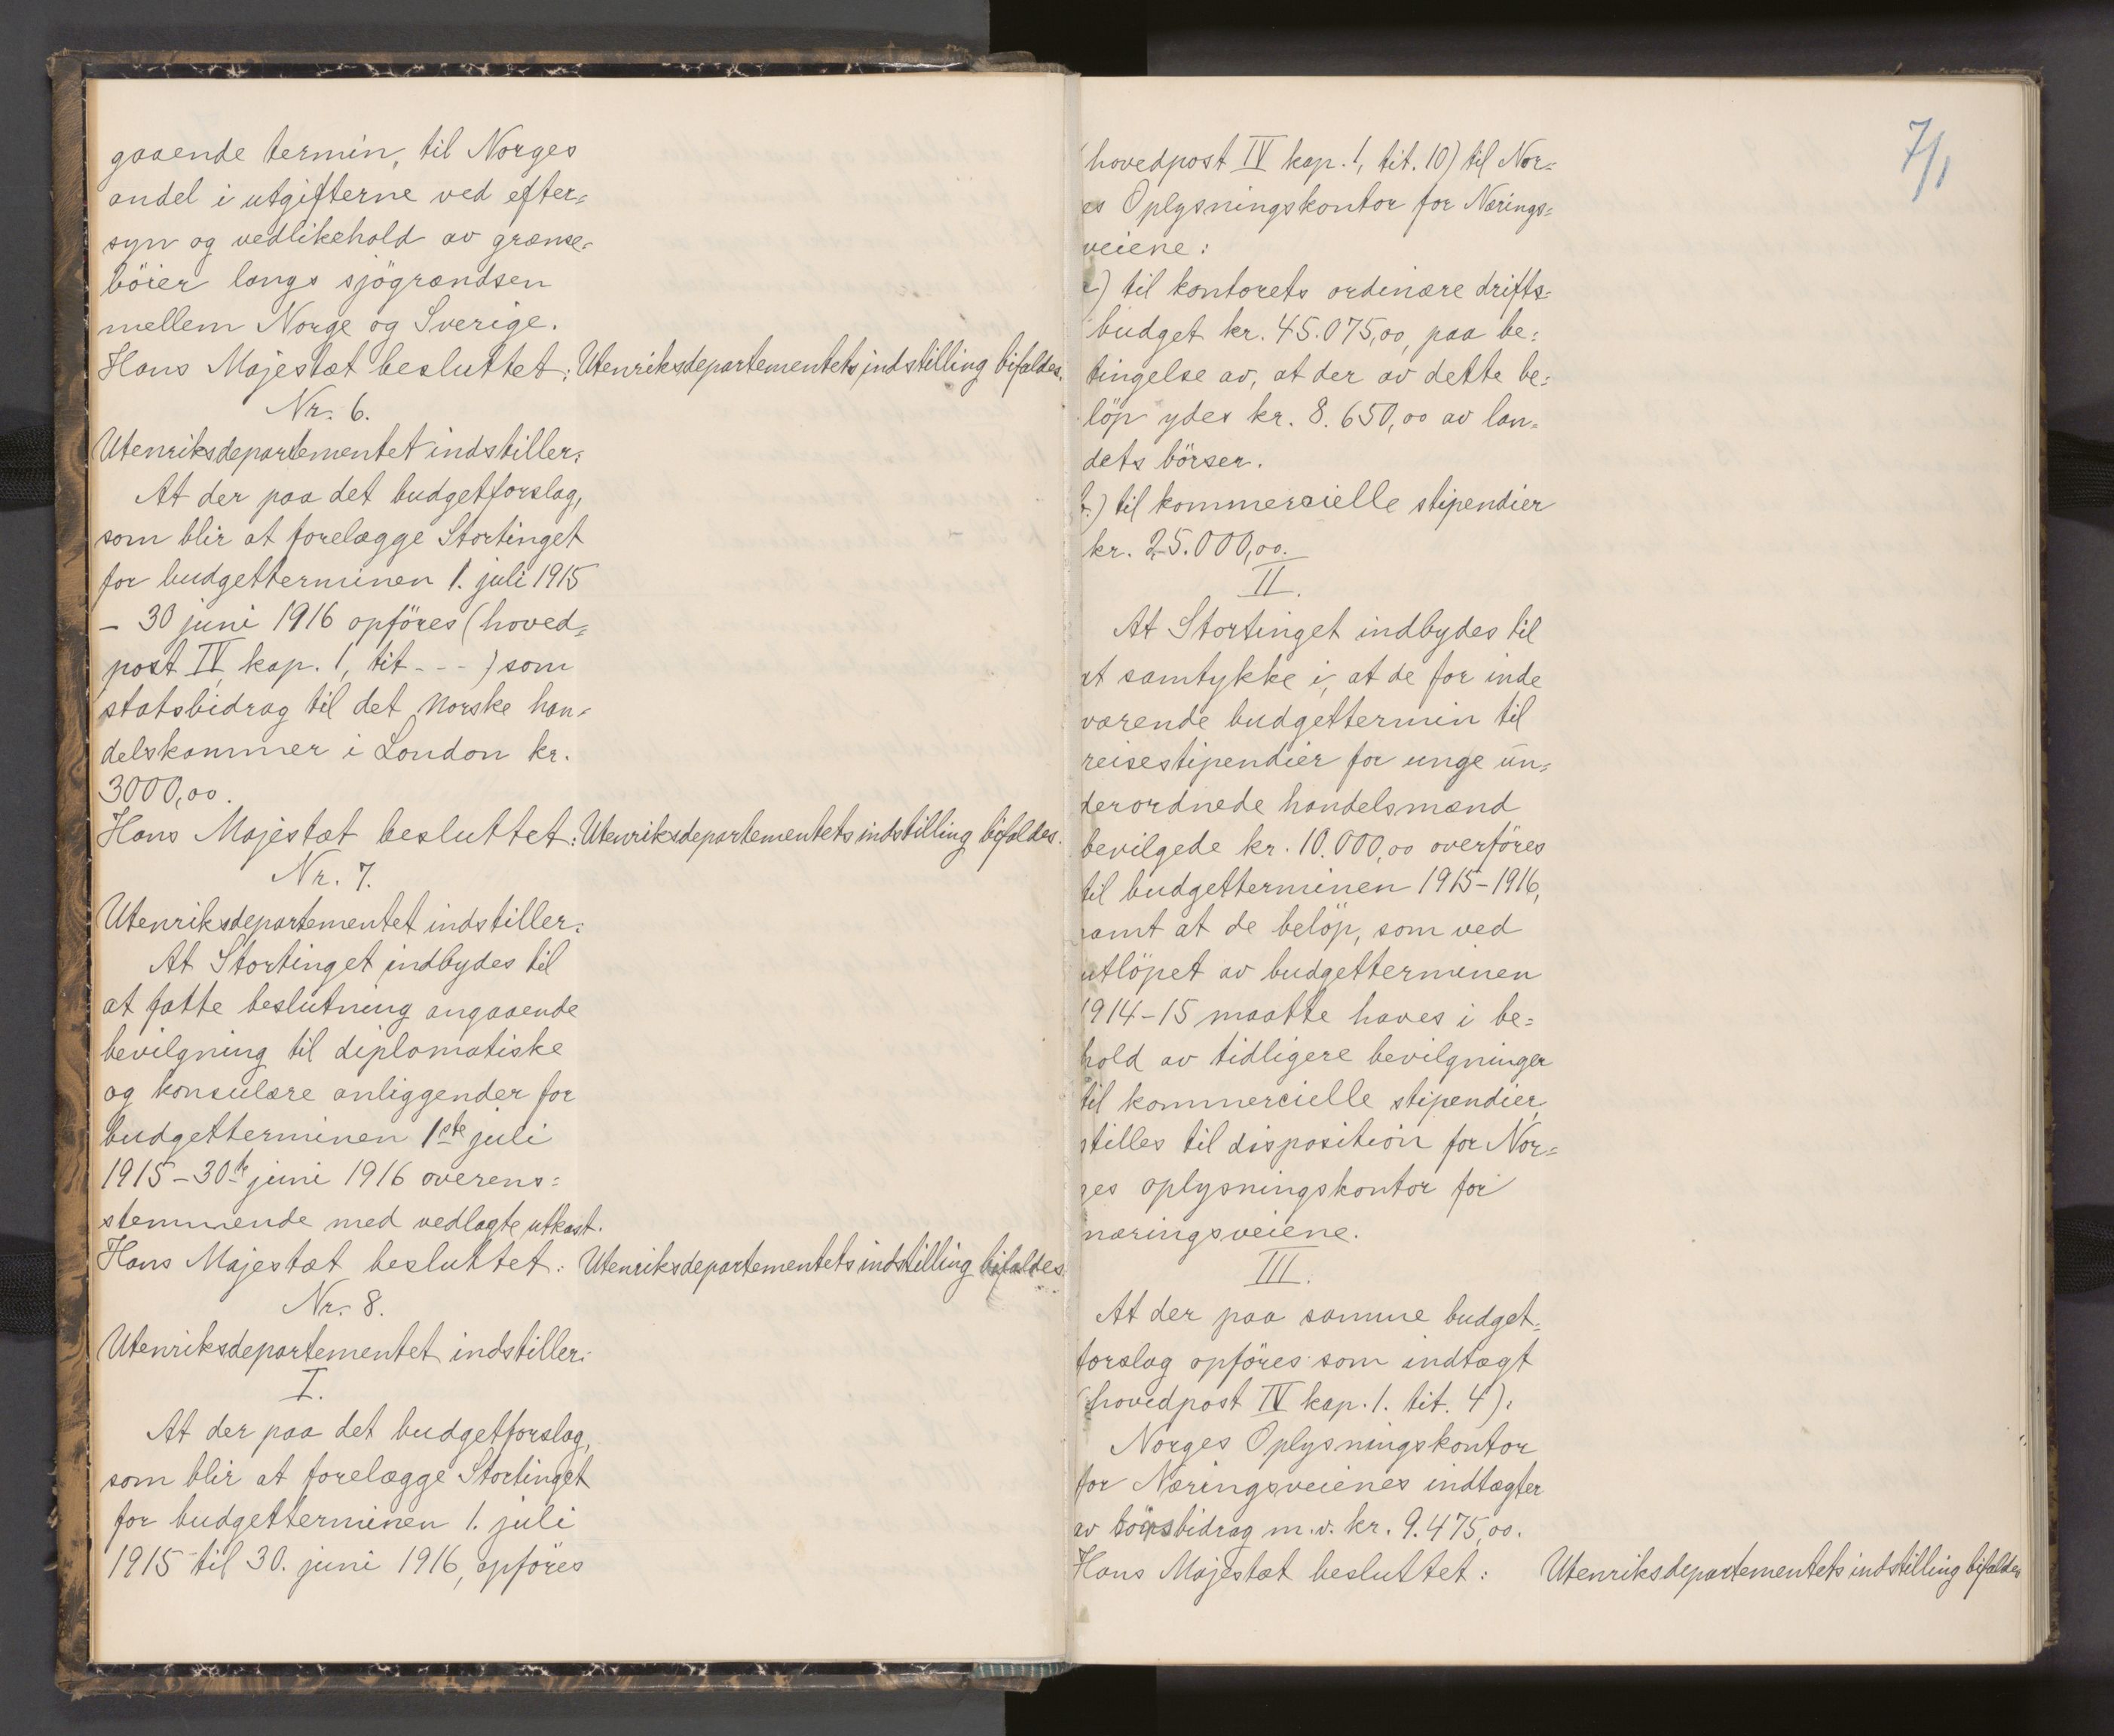 gaaende termin, til Norges
andel i utgifterne ved efter=
syn og vedlikehold av grænse=
böier langs sjögrændsen
mellem Norge og Sverige.
Hans Majestæt besluttet: Utenriksdepartementets indstilling bifaldes.
Nr. 6.
Utenriksdepartementet indstiller:
At der paa det budgetforslag,
som blir at forelægge Stortinget
for budgetterminen 1. juli 1915
- 30 juni 1916 opföres (hoved=
post IV, kap. 1, tit - - - ) som
statsbidrag til det norske han=
delskammer i London kr.
3000,00.
Hans Majestæt besluttet: Utenriksdepartementets indstilling bifaldes.
Nr. 7.
Utenriksdepartementet indstiller:
At Stortinget indbydes til
at fatte beslutning angaaende
bevilgning til diplomatiske
og konsulære anliggender for
budgetterminen 1ste juli
1915 - 30te juni 1916 overens=
stemmende med vedlagte utkast.
Hans Majestæt besluttet: Utenriksdepartementets indstilling bifaldes
Nr. 8.
Utenriksdepartementet indstiller:
I.
At der paa det budgetforslag,
som blir at forelægge Stortinget
for budgetterminen 1. juli
1915 til 30. juni 1916, opföres
7/1
(hovedpost IV kap. 1, tit. 10) til Nor=
es Oplysningskontor for Nærings=
veiene:
a) til kontorets ordinære drifts=
budget kr. 45.075,00, paa be=
tingelse av, at der av dette be=
löp ydes kr. 8.650,00 av lan=
dets börser.
b.) til kommercielle stipendier
kr. 25.000,00.
II.
At Stortinget indbydes til
at samtykke i, at de for inde
værende budgettermin til
reisestipendier for unge un=
derordnede handelsmænd
bevilgede kr. 10.000,00 overföres
til budgetterminen 1915-1916,
samt at de belöp, som ved
utlöpet av budgetterminen
1914-15 maatte haves i be=
hold av tidligere bevilgninger
til kommercielle stipendier,
stilles til disposition for Nor=
ges oplysningskontor for
næringsveiene.
III.
At der paa samme budget=
forslag opföres som indtægt
(hovedpost IV kap. 1. tit. 4):
Norges Oplysningskontor
for Næringsveienes indtægter
av börsbidrag m.v. kr. 9.475,00.
Hans Majestæt besluttet: Utenriksdepartementets indstilling bifaldes